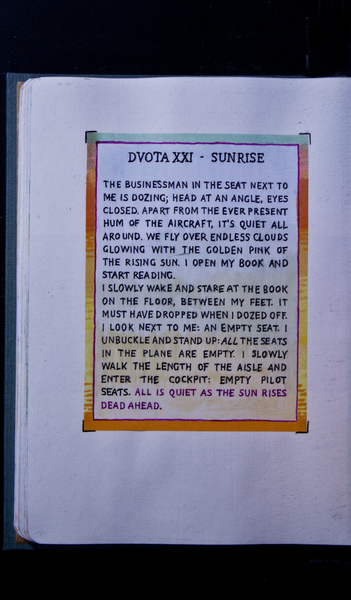 DVOTA XXI - SUNRISE
THE BUSINESSMAN IN THE SEAT NEXT TO
ME IS DOZING; HEAD AT AN ANGLE, EYES
CLOSED. APART FROM THE EVER PRESENT
HUM OF THE AIRCRAFT, IT'S QUIET ALL
AROUND. WE FLY OVER ENDLESS CLOUDS
GLOWING WITH THE GOLDEN PINK OF
THE RISING SUN. I OPEN MY BOOK AND
START READING.
I SLOWLY WAKE AND STARE AT THE BOOK
ON THE FLOOR, BETWEEN MY FEET. IT
MUST HAVE DROPPED WHEN I DOZED OFF.
I LOOK NEXT TO ME: AN EMPTY SEAT. I
UNBUCKLE AND STAND UP: ALL THE SEATS
IN THE PLANE ARE EMPTY. I SLOWLY
WALK THE LENGTH OF THE AISLE AND
ENTER THE COCKPIT: EMPTY PILOT
SEATS. ALL IS QUIET AS THE SUN RISES
DEAD AHEAD.